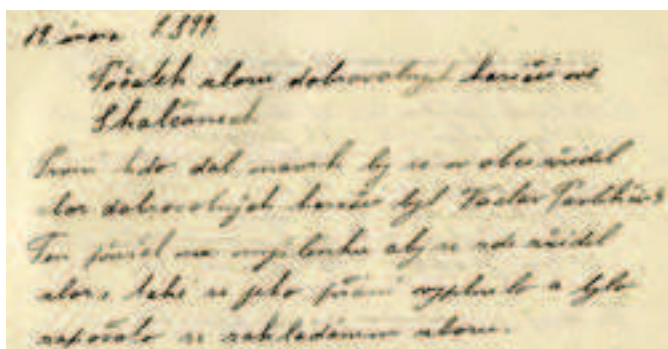 19. února 1899.
Počátek sboru dobrovolných hasičů ve
Skalčanech
První kdo dal návrh by se v obci zřídil
sbor dobrovolných hasičů byl Václav
Ten přišel na myšlenku aby se zde zřídil
sbor, také se jeho přání vyplnilo a bylo
započato se zakládáním sboru.